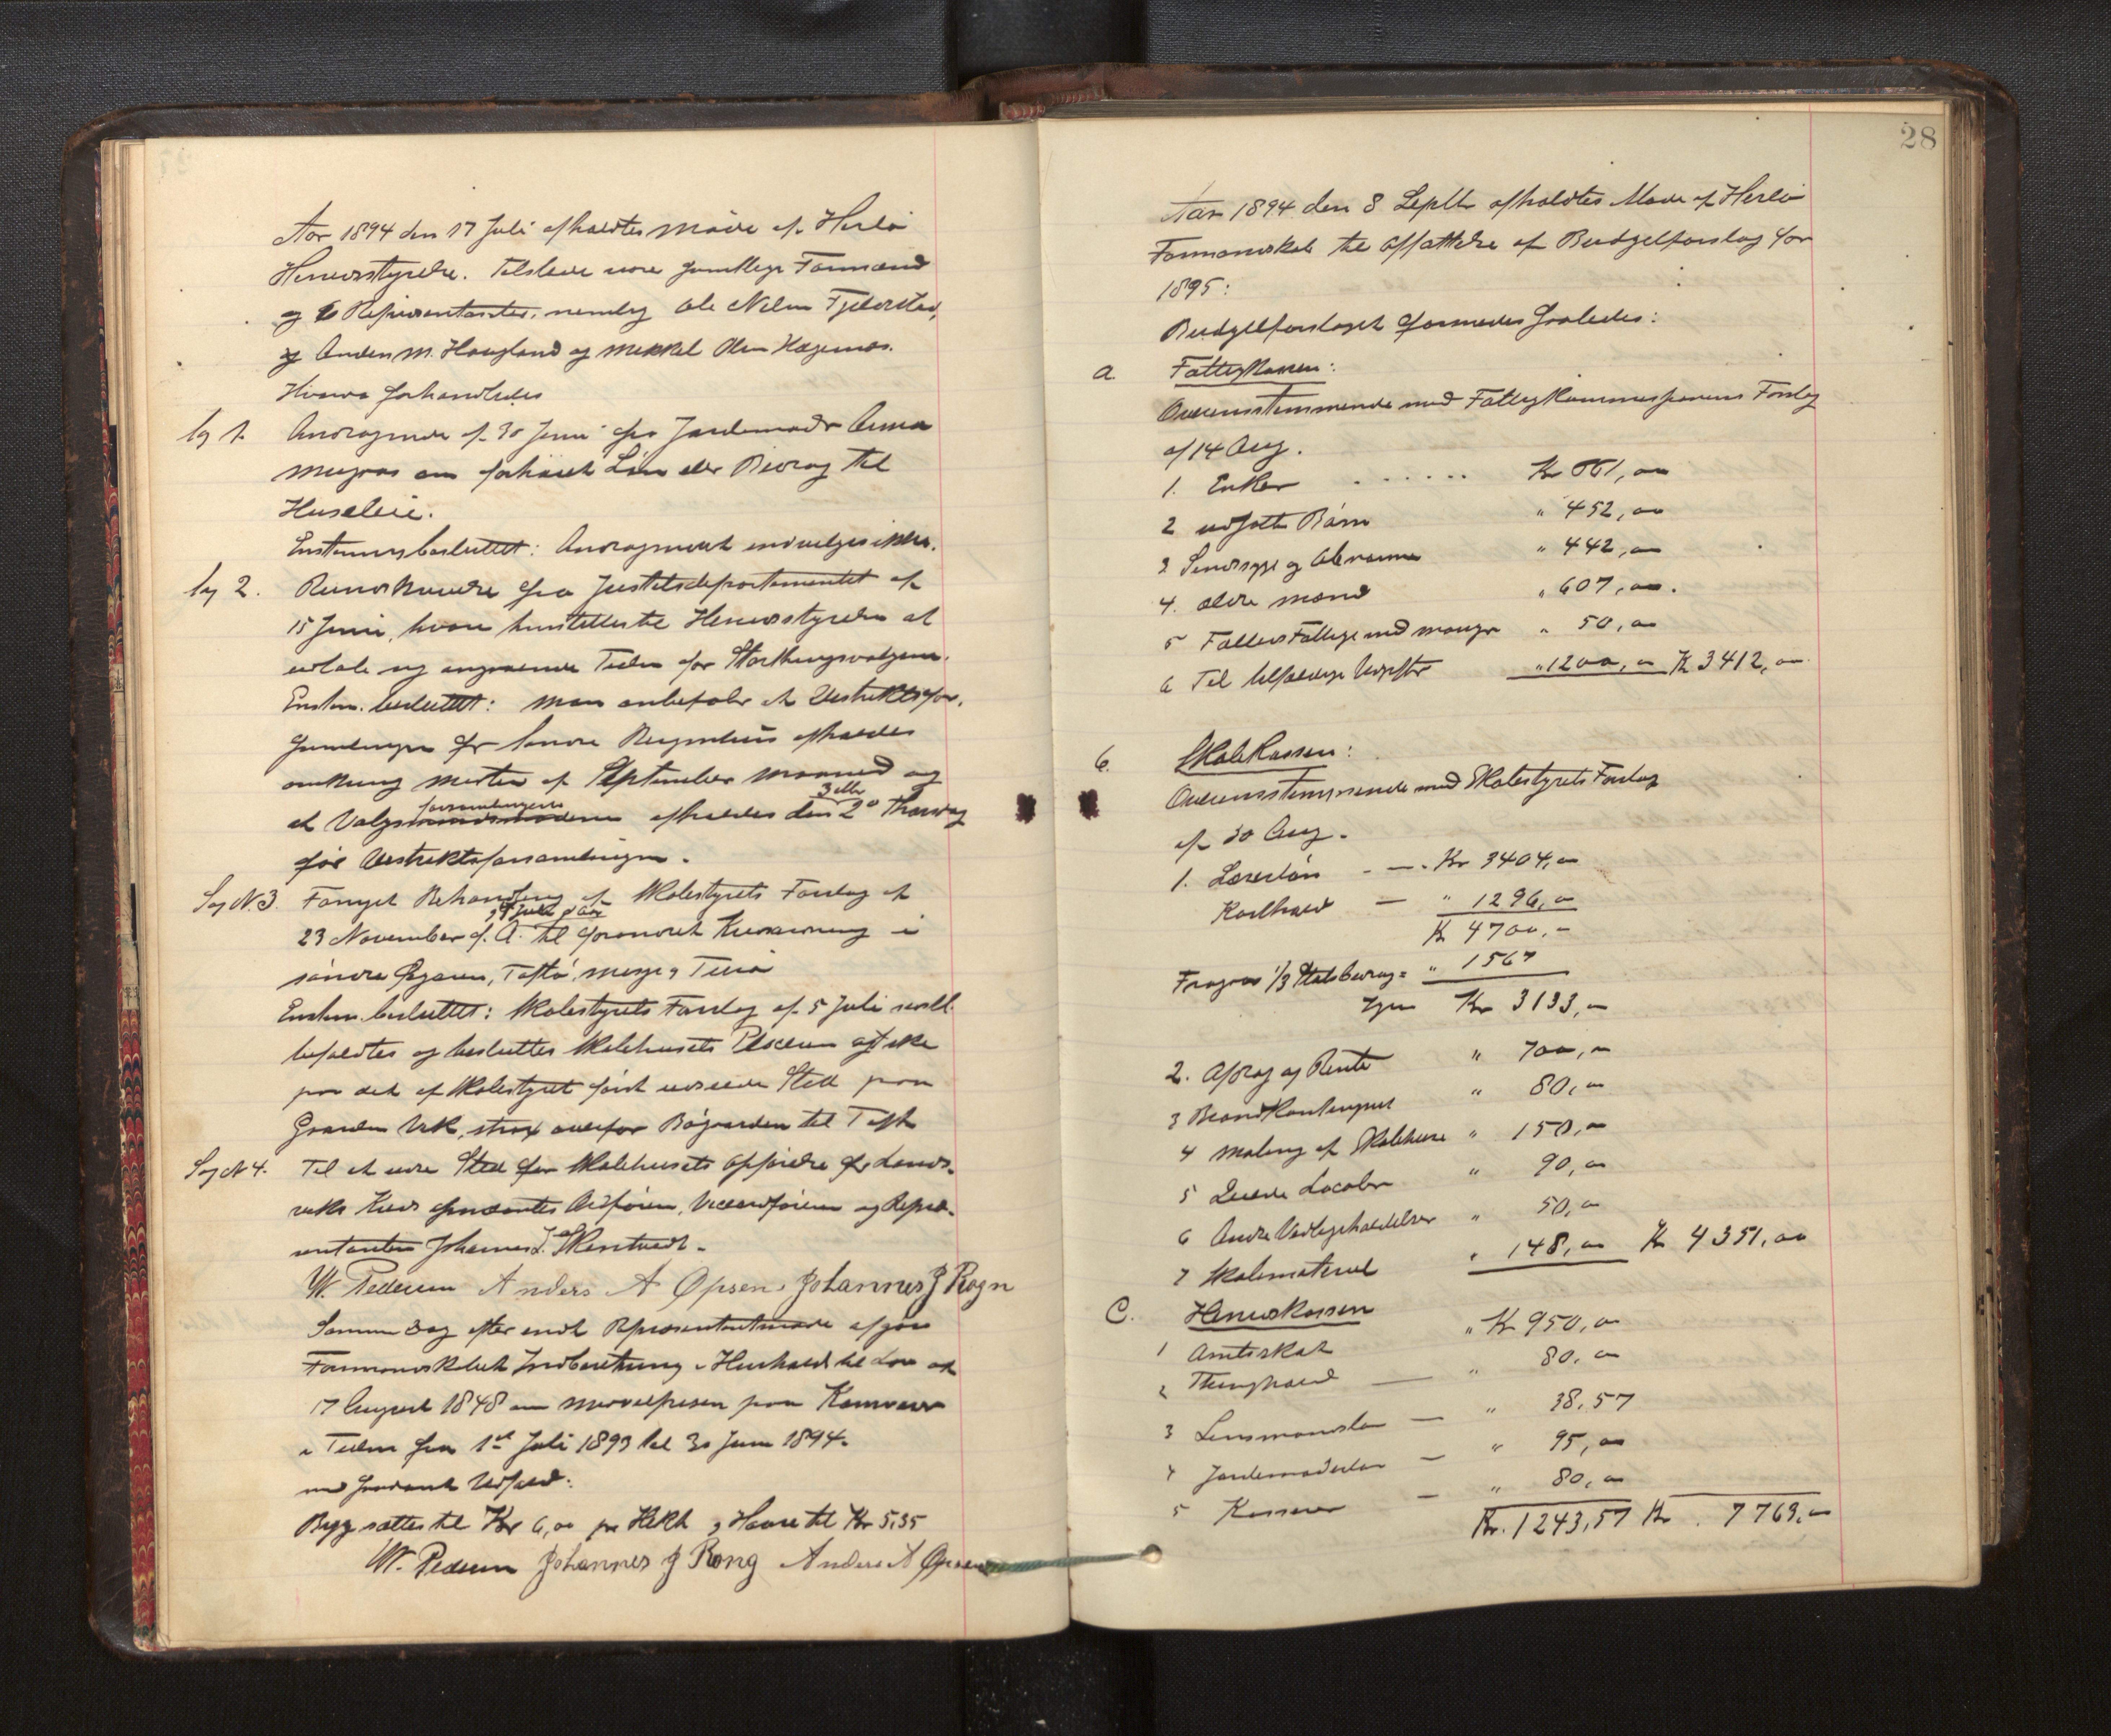 Aar 1894 den 17 Juli afholdtes Møde af Herlø
Herredsstyrelse. Tilstede vare samtlige Formænd
og 6 Repræsentanter, nemlig Ole Nilsen Fjeldstad,
og Anders M. Haugland og Mikkel Olsen Hagenæs.
Hvorda forhandledes
Sag 1. Andragende af 30 Juni fra Jordemoder Anna
Misjons om forhøiet Løn eller Bidrag til
Husleie.
Enstemmig besluttet: Andragendet indvilges ikke.
Sag 2. Rundskrivelse fra Justitsdepartementet af
15 Juni, hvori henstilles til Herredsstyrelsen at
udtale sig angaaende Tiden for Storthingsvalgene.
Enstem. besluttet: Man anbefaler at Distriktsfor-
samlingen for Søndre Bergenhus afholdes
omkring Midten af September Maaned og
3 eller
forsamlingerne
at Valgmandsmøderne afholdes den 20 Thorsdag
før Distriktsforsamlingen.
Sag N. 3. Fornyet Behandling af Skolestyrets Forslag af
5 Juli d Aar
23 November f. A. til forandret Kredsordning i
søndre Øygaren, Toftø, Misje, Turø
Enstem. besluttet: Skolestyrets Forslag af 5 Juli vedtl.
befaldtes og besluttes Skolehusets Placeren at ske
paa det af Skolestyret først udseede Sted paa
Gaarden Vik, strax ovenfor Bøgaarden til Toft
Sag N 4. Til at udse Sted for Skolehusets Opførelse for Lands-
viks Kreds opnævntes Ordføren, Viceordføreren og Repræ-
sentanten Johannes J. Skarstvedt.
W. Pedersen Anders A Opsen. Johannes J Rogn
Samme Dag efter endt Repræsentantmøde afgav
Formandskabet Indberetning i Henhold til Lov af
17 August 1848 om Middelprisen paa Kornvarer
i Tiden fra 1ste Juli 1893 til 30 Juni 1894
med saadant Udfald:
Byg sattes til Kr 6,00 pr Hektl, Havre til Kr 5,35
W. Pedersen Johannes J Rong Anders A Opsen
28
Aar 1894 den 8 Septb afholdtes Møde af Herlø
Formandskab til Affattelse af Budgetforslag for
1895:
Budgetforslaget formedes saaledes:
a. Fattigkassen:
Overensstemmende med Fattigkommissionens Forslag
af 14 Aug.
1. Enker . . . . . . Kr 661,00
2 udsatte Børn " 452,00
3 Sindssyge og Abnorme " 442,00
4. ældre Mænd " 607,00.
5 Fælleds Fattige med mangr " 50,00
6 Til tilfældige Udgifter " 1200,00 Kr 3412,00
b. Skolekassen:
Overensstemmende med Skolestyrets Forslag
af 30 Aug.
1. Lærerløn - — . Kr 3404,00
Kosthold — " 1296,00
Kr 4700,00
Fragaar 1/3 Statsbidrag = " 1567
Igjen Kr 3133,00
2. Afdrag og Rente " 700,00
3 Brandkontingent " 80,00
4 Maling af Skolehuse " 150,00
5 Leiede Localer " 90,00
6 Andre Vedligeholdelser " 50,00
7 Skolemateriel " 148,00 Kr 4351,00
C. Herredskassen
1 Amtsskat " Kr 950,00
2 Thinghold — " 80,00
3 Lensmandsløn — " 38,57
4 Jordemoderløn — " 95,00
5 Kasserer — " 80,00
Kr. 1243,57 Kr. 7763,00